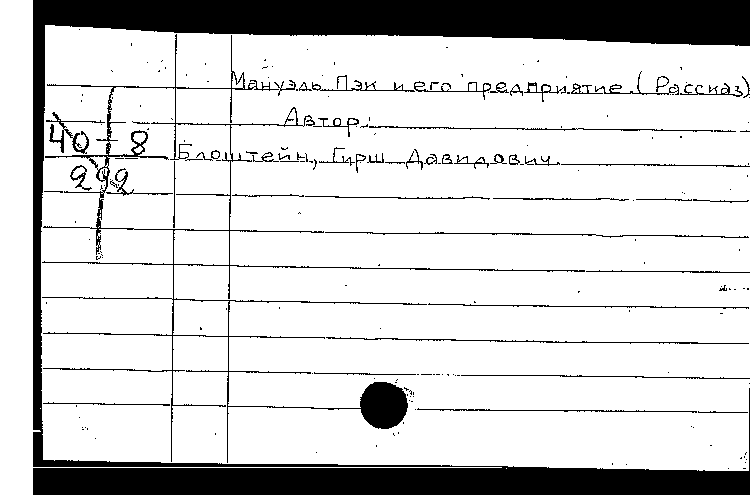 Мануэль Пэк и его предприятие. (Рассказ)
Автор:
40-8
Блоштейн, Гирш Давидович.
292